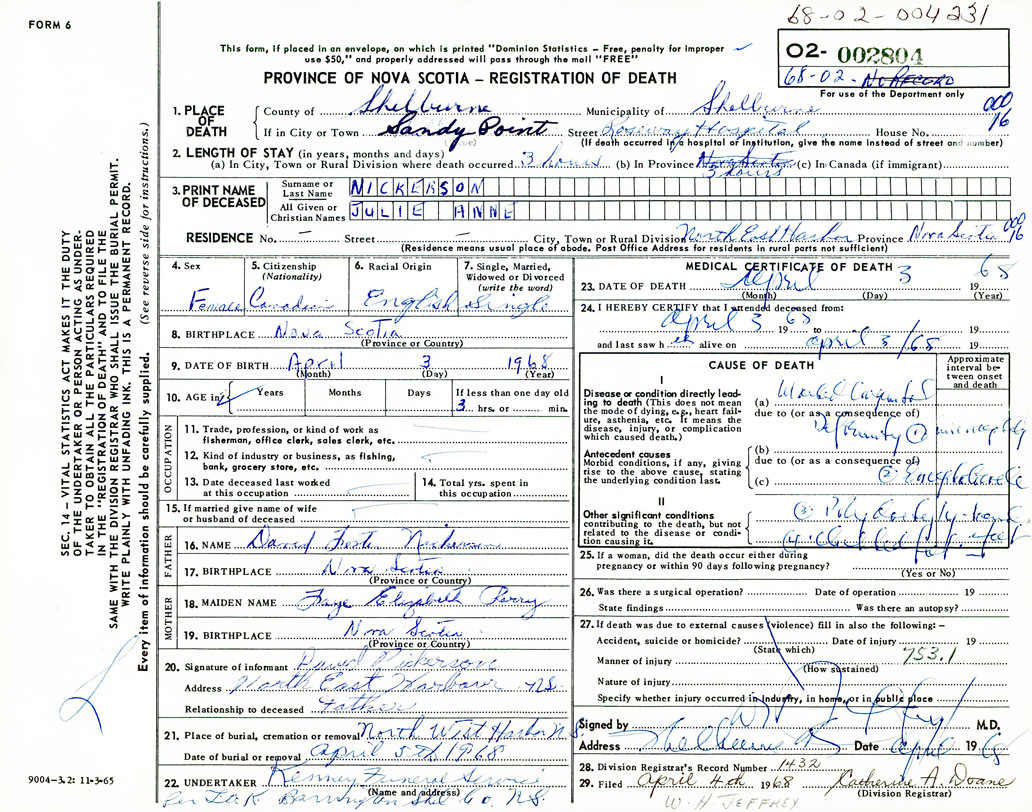 FORM 6
68-02-004231
This form, if placed in an envelope, on which is printed "Dominion Statistics - Free, penalty for improper
use $50," and properly addressed will pass through the mail "FREE"
02- 002804
68-02- No RECORD
For use of the Department only
PROVINCE OF NOVA SCOTIA - REGISTRATION OF DEATH
1. PLACE OF DEATH
County of Shelburne Municipality of Shelburne
000 16
If in City or Town Sandy Point Street Roseway Hospital House No.
(If death occurred in a hospital or institution, give the name instead of street and number)
2. LENGTH OF STAY (in years, months and days)
(a) In City, Town or Rural Division where death occurred 3 hours (b) In Province Nova Scotia 3 hours (c) In Canada (if immigrant)
3. PRINT NAME OF DECEASED
Surname or Last Name NICKERSON
All Given or Christian Names JULIE ANNE
RESIDENCE No. — Street — City, Town or Rural Division North East Harbor Province Nova Scotia 000 16
(Residence means usual place of abode. Post Office Address for residents in rural parts not sufficient)
4. Sex
Female
5. Citizenship (Nationality)
Canadian
6. Racial Origin
English
7. Single, Married, Widowed or Divorced (write the word)
Single
8. BIRTHPLACE Nova Scotia
(Province or Country)
9. DATE OF BIRTH April 3 1968
(Month) (Day) (Year)
10. AGE in Years Months Days If less than one day old
3 hrs. or min.
OCCUPATION
11. Trade, profession, or kind of work as
fisherman, office clerk, sales clerk, etc.
12. Kind of industry or business, as fishing,
bank, grocery store, etc.
13. Date deceased last worked
at this occupation
14. Total yrs. spent in
this occupation
15. If married give name of wife
or husband of deceased
FATHER
16. NAME David Nickerson
17. BIRTHPLACE Nova Scotia
(Province or Country)
MOTHER
18. MAIDEN NAME Faye Elizabeth Perry
19. BIRTHPLACE Nova Scotia
(Province or Country)
20. Signature of informant David Nickerson
Address North East Harbour NS.
Relationship to deceased Father
21. Place of burial, cremation or removal North West Harbor N.S.
Date of burial or removal April 5th 1968
22. UNDERTAKER Kenney Funeral Service
(Name and address)
Barrington Shel Co. N.S.
MEDICAL CERTIFICATE OF DEATH
23. DATE OF DEATH April 3 1968
(Month) (Day) (Year)
24. I HEREBY CERTIFY that I attended deceased from:
April 3 1968 to 19
and last saw h er alive on April 3/68 19
CAUSE OF DEATH
Approximate interval between onset and death
I
Disease or condition directly leading to death (This does not mean the mode of dying, e.g., heart failure, asthenia, etc. It means the disease, injury, or complication which caused death.)
(a) Marked Congenital
due to (or as a consequence of)
Deformity ① microcephaly
Antecedent causes
Morbid conditions, if any, giving rise to the above cause, stating the underlying condition last.
(b)
due to (or as a consequence of)
(c) ② Encephalocele
II
Other significant conditions contributing to the death, but not related to the disease or condition causing it.
③ Polydactyly - hands
25. If a woman, did the death occur either during
pregnancy or within 90 days following pregnancy?
(Yes or No)
26. Was there a surgical operation? Date of operation 19
State findings Was there an autopsy?
27. If death was due to external causes (violence) fill in also the following: -
Accident, suicide or homicide? Date of injury 19
(State which)
753.1
Manner of injury
(How sustained)
Nature of injury
Specify whether injury occurred in industry, in home, or in public place
Signed by W H Jeffrey M.D.
Address Shelburne Date April 1968
28. Division Registrar's Record Number 1432
29. Filed April 4th 1968 Catherine A. Doane
(Division Registrar)
W. H. JEFFREY
SEC. 14 - VITAL STATISTICS ACT MAKES IT THE DUTY
OF THE UNDERTAKER OR PERSON ACTING AS UNDER-
TAKER TO OBTAIN ALL THE PARTICULARS REQUIRED
IN THE "REGISTRATION OF DEATH" AND TO FILE THE
SAME WITH THE DIVISION REGISTRAR WHO SHALL ISSUE THE BURIAL PERMIT.
WRITE PLAINLY WITH UNFADING INK. THIS IS A PERMANENT RECORD.
Every item of information should be carefully supplied. (See reverse side for instructions.)
9004-3.2: 11-3-65